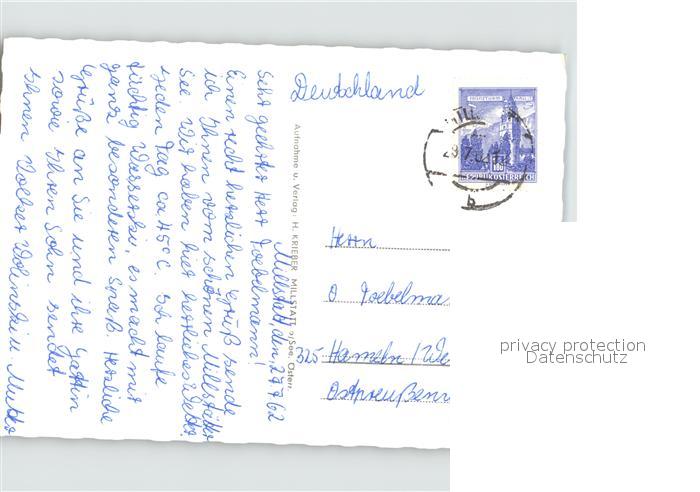 Deutschland
Millstatt, den 27.7.62
Sehr geehrter Herr Poebelmann!
Einen recht herzlichen Gruß sende
ich Ihnen vom schönen Millstätter
See. Wir haben hier herrliches Wetter
jeden Tag ca 45°C. Ich laufe
tüchtig Wasserski, es macht mir
ganz besonderen Spaß. Herzliche
Grüße an Sie und ihre Gattin
sowie Ihren Sohn sendet
Ihnen Volker
Aufnahme u. Verlag: H. KRIEBER MILLSTATT a/See, Österr.
REPUBLIK ÖSTERREICH
Herrn
O Poebelma
325 Hameln / We
Ostpreußenr
privacy protection
Datenschutz